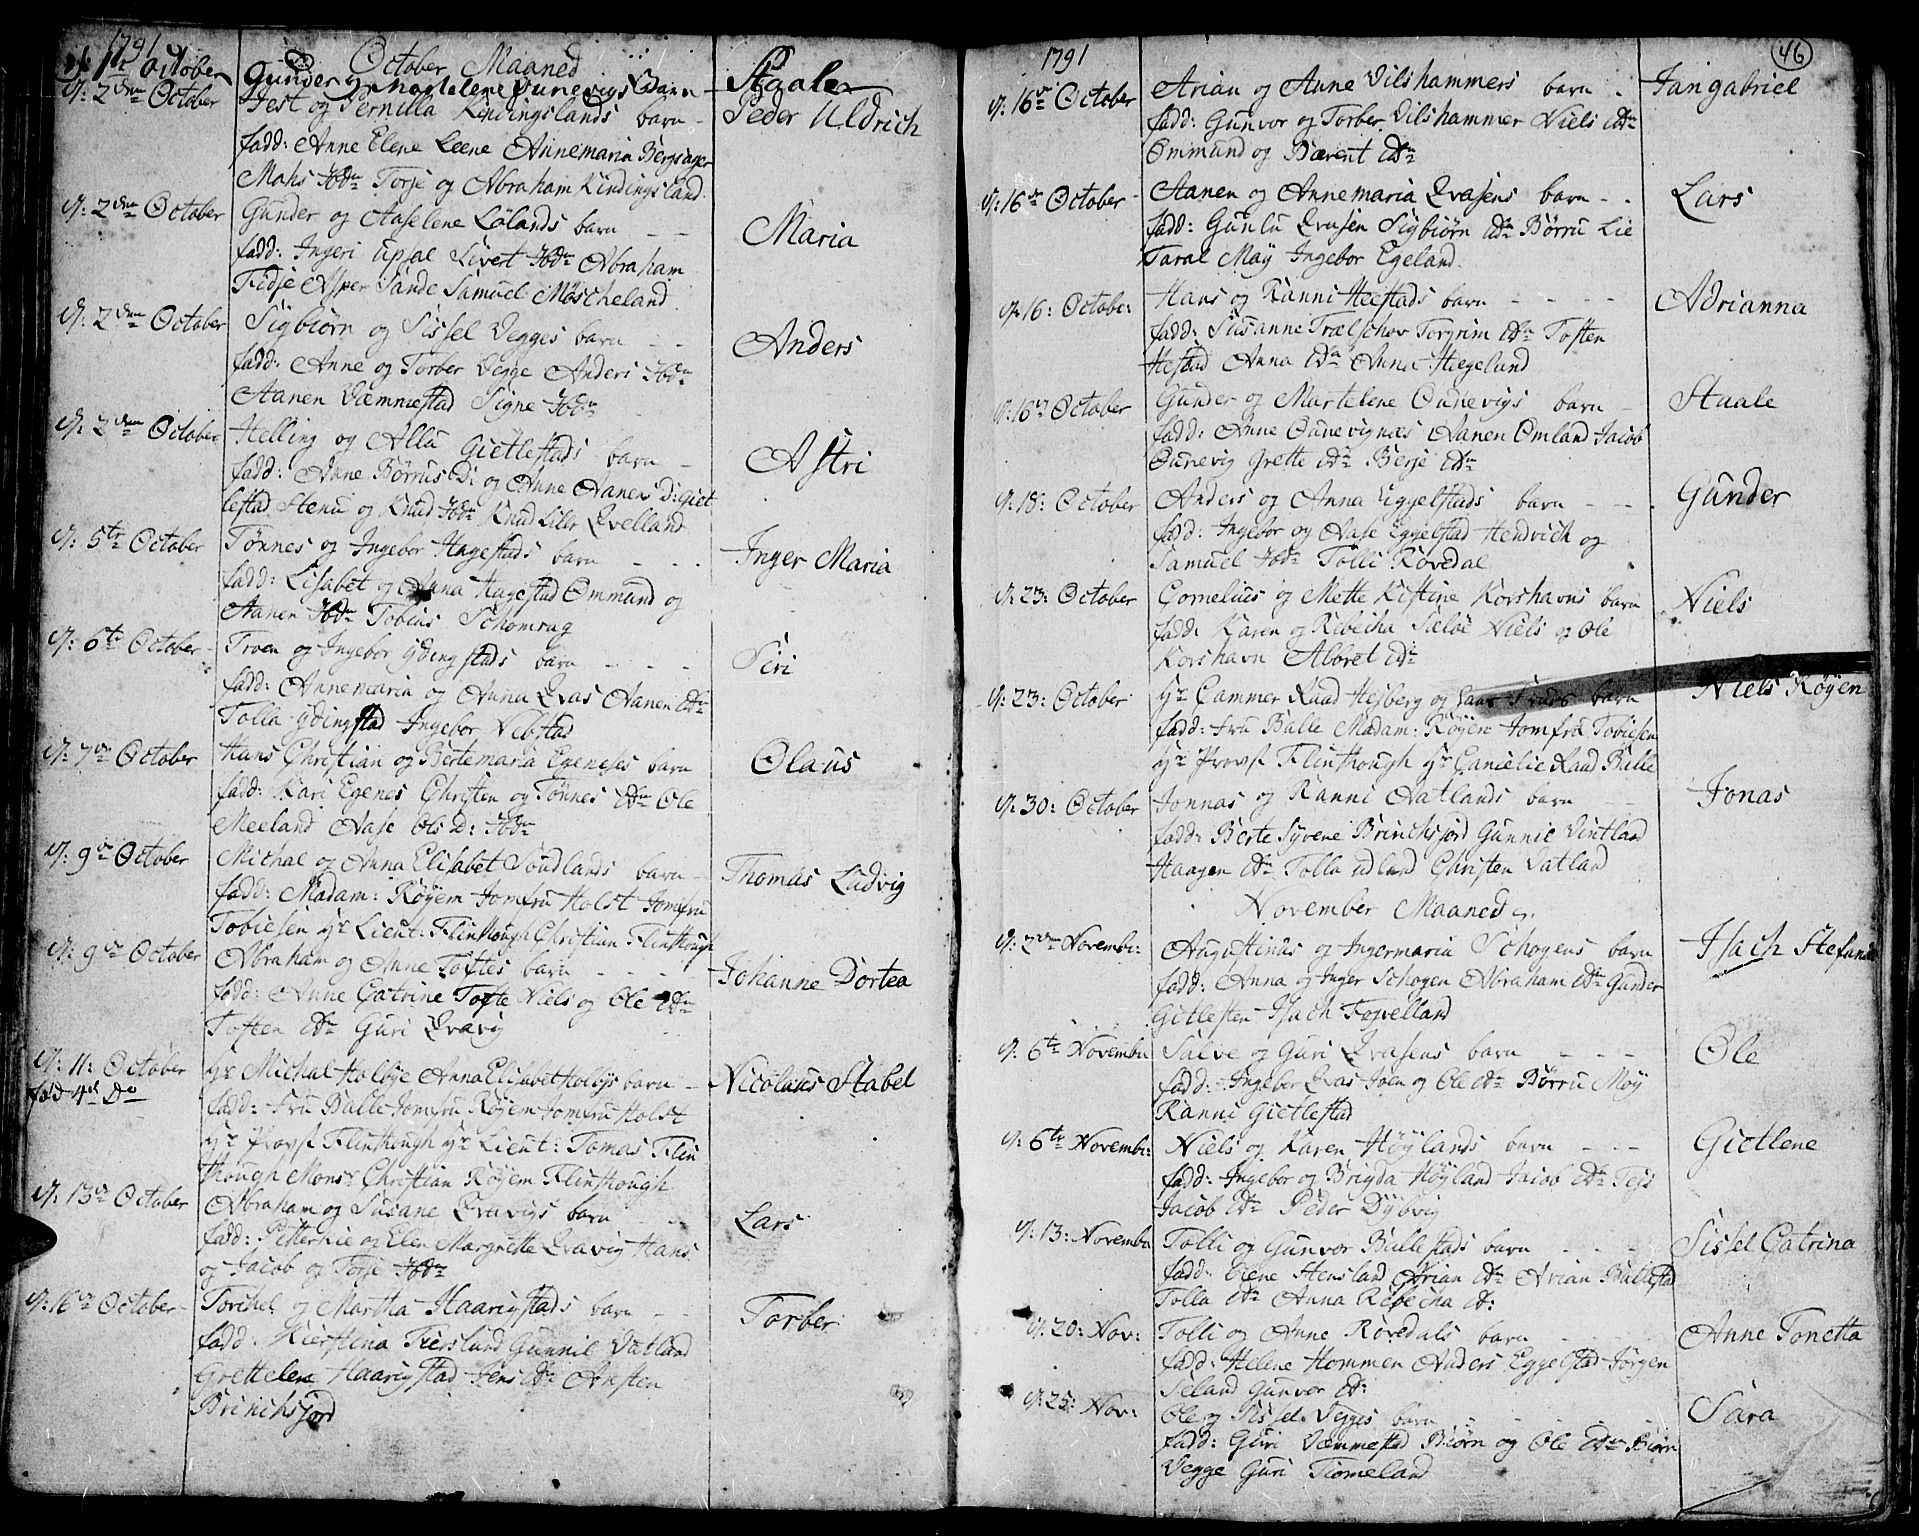 1791
October Maaned
d: 1te October
Gunder og Martelene Ounevigs Barn - Staale
d: 2den October
Jest og Pernilla Kindingslands barn - Peder Uldrich
fadd: Anne Elene Leene Annemaria Bergsager
Mahs ibdm Torje og Abraham Kindingsland
d: 2den October
Gunder og Aaselene Lølands barn - - Maria
fadd: Ingeri Upsal Sivert ibdm Abraham
Fidje Asper Sande Samuel Møscheland
d: 2den October
Sigbiørn og Sissel Vegges barn - - Anders
fadd: Anne og Torber Vegge Anders ibdm
Aanen Væmmestad Signe ibdm
d: 2den October
Helling og Allu Gietlestads barn - Astri
fadd: Anne Børrus Di og Anne Aanens D: Giet
lestad Stenu og Knud ibdm Knud Lille Qvelland
d: 5te October
Tønnes og Ingebor Hagestads barn - - - Inger Maria
fadd: Lisabet og Anna Hagestad Ommund og
Aanen ibdm Tobias Schomrag
d: 6te October
Troen og Ingebor Ydingstads barn - - - Siri
fadd: Annemaria og Anna Qvas Aanen do
Tolla Ydingstad Ingebor Nebstad
d: 7de October
Hans Christian og Bertemaria Egenesses barn Olaus
fadd: Kari Egenes Christen og Tønnes do Ole
Meeland Aase Ols D: ibdm
d: 9de October
Michal og Anna Elisabet Sundlands barn - Thomas Ludvig
fadd: Madam: Røyem Jomfru Holst Jomfru
Tobiesen Hr Lieut: Flinthough Christian Flinthough
d: 9de October
Abraham og Anne Toftes barn - - - Johanne Dortea
fadd: Anne Catrine Tofte Niels og Ole do
Tosten do Guri Qvavig
d: 11: October
fød 4de Do
Hr Michal Holbye Anna Elisabet Holbys barn - Nicolaus Stabel
fadd: Fru Balle Jomfru Røyem Jomfru Holst
Hr Provst Flinthough Hr Lieut: Tomas Flin
though Monsr Christian Røyem Flinthough
d: 13de October
Abraham og Susane Qvavigs barn - - Lars
fadd: Petter Lie og Elen Margrette Qvavig Hans
og Jacob og Torje ibdm
d: 16de October
Torchel og Martha Haarigstads barn - Torber
fadd: Kierstina Fiersland Gunnil Vatland
Grettelene Haarigstad Jens do Aasten
Brinchsjord
1791
46
d: 16de October
Arian og Anne Vilshammers barn - Jan gabriel
fadd: Gunvor og Torber Vilshammer Niels do
Ommund og Bærent do
d: 16de October
Aanen og Annemaria Qvasens barn - - Lars
fadd: Gunlu Qvasen Sigbiørn do Børru Lie
Taral Møy Ingebor Egeland
d: 16: Octobe:
Hans og Ranni Hestads barn - - - - Adrianna
fadd: Susanne Trælschov Torgrim do Tosten
Hestad Anna do Anna Hægeland
d: 16de October
Gunder og Martelene Ounevigs barn - Staale
fadd: Anne Ounevignæs Aanen Omland Jacob
Ounevig Grette do Berje do
d: 18: October
Anders og Anna Eggelstads barn - - - Gunder
fadd: Ingebor og Aase Eggelstad Hendrich og
Samuel ibdm Tolli Røvedal
d: 23: October
Cornelius og Mette Kistine Korshavns barn Niels
fadd: Karen og Ribecha Sæløe Niels og Ole
Korshavn Albret do
d: 23: October
Hr Cammer Raad Hesberg og barn Niels Røyem
fadd: Fru Balle Madam: Røyem Jomfru Tobiesen
Hr Provst Flinthough Hr Cancelie Raad Balle
d: 30: October
Jonnas og Ranni Aatlands barn - Jonas
fadd: Berte Syvene Brinchsjord Gunnil Vintland
Haagen do Tolla Udland Christen Vatland
November Maaned
d: 2den Novembr:
Augustinus og Ingermaria Schogens barn Isach Stefanus
fadd: Anna og Inger Schogen Abraham do Gunder
Gitlesten Isach Fosvelland
d: 6te Novembr
Salve og Guri Qvasens barn - - - Ole
fadd: Ingebor Qvas Joen og Ole do Børru Møy
Ranni Gietlestad
d: 6te Novembr:
Niels og Karen Høylands barn - - - Gietlene
fadd: Ingebor og Brigda Høyland Jacob do Tejs
Jacob do Peder Dybvig
d: 13: Novembr
Tolli og Gunvor Bullestads barn - - - Sissel Catrina
fadd: Eiene Stensland Arian do Arian Bullestad
Tolla do Anna Ribecha do:
d: 20: Nov:
Tolli og Anne Røvedals barn - - Anne Tonetta
fadd: Helene Hommen Anders Eggelstad Jørgen
Seland Gunvor do:
d: 25: Nov:
Ole og Sissel Vegges barn - - - - Sara
fadd: Guri Væmmestad Biørn og Ole do Biørn
Vegge Guri Tiomeland